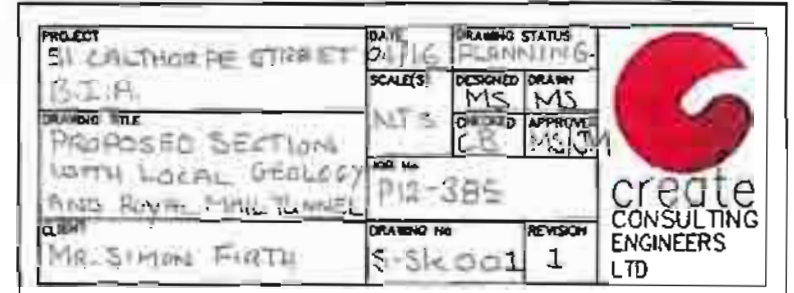 PROJECT
51 CALTHORPE STREET
B.I.A.
DRAWING TITLE
PROPOSED SECTION
WITH LOCAL GEOLOGY
AND ROYAL MAIL TUNNEL
CLIENT
MR. SIMON FIRTH
DATE
04/16
DRAWING STATUS
PLANNING
SCALE(S)
NTS
DESIGNED
MS
DRAWN
MS
CHECKED
CB
APPROVED
MS
JM
JOB No
P12-385
DRAWING No
S-SK001
REVISION
1
create
CONSULTING
ENGINEERS
LTD